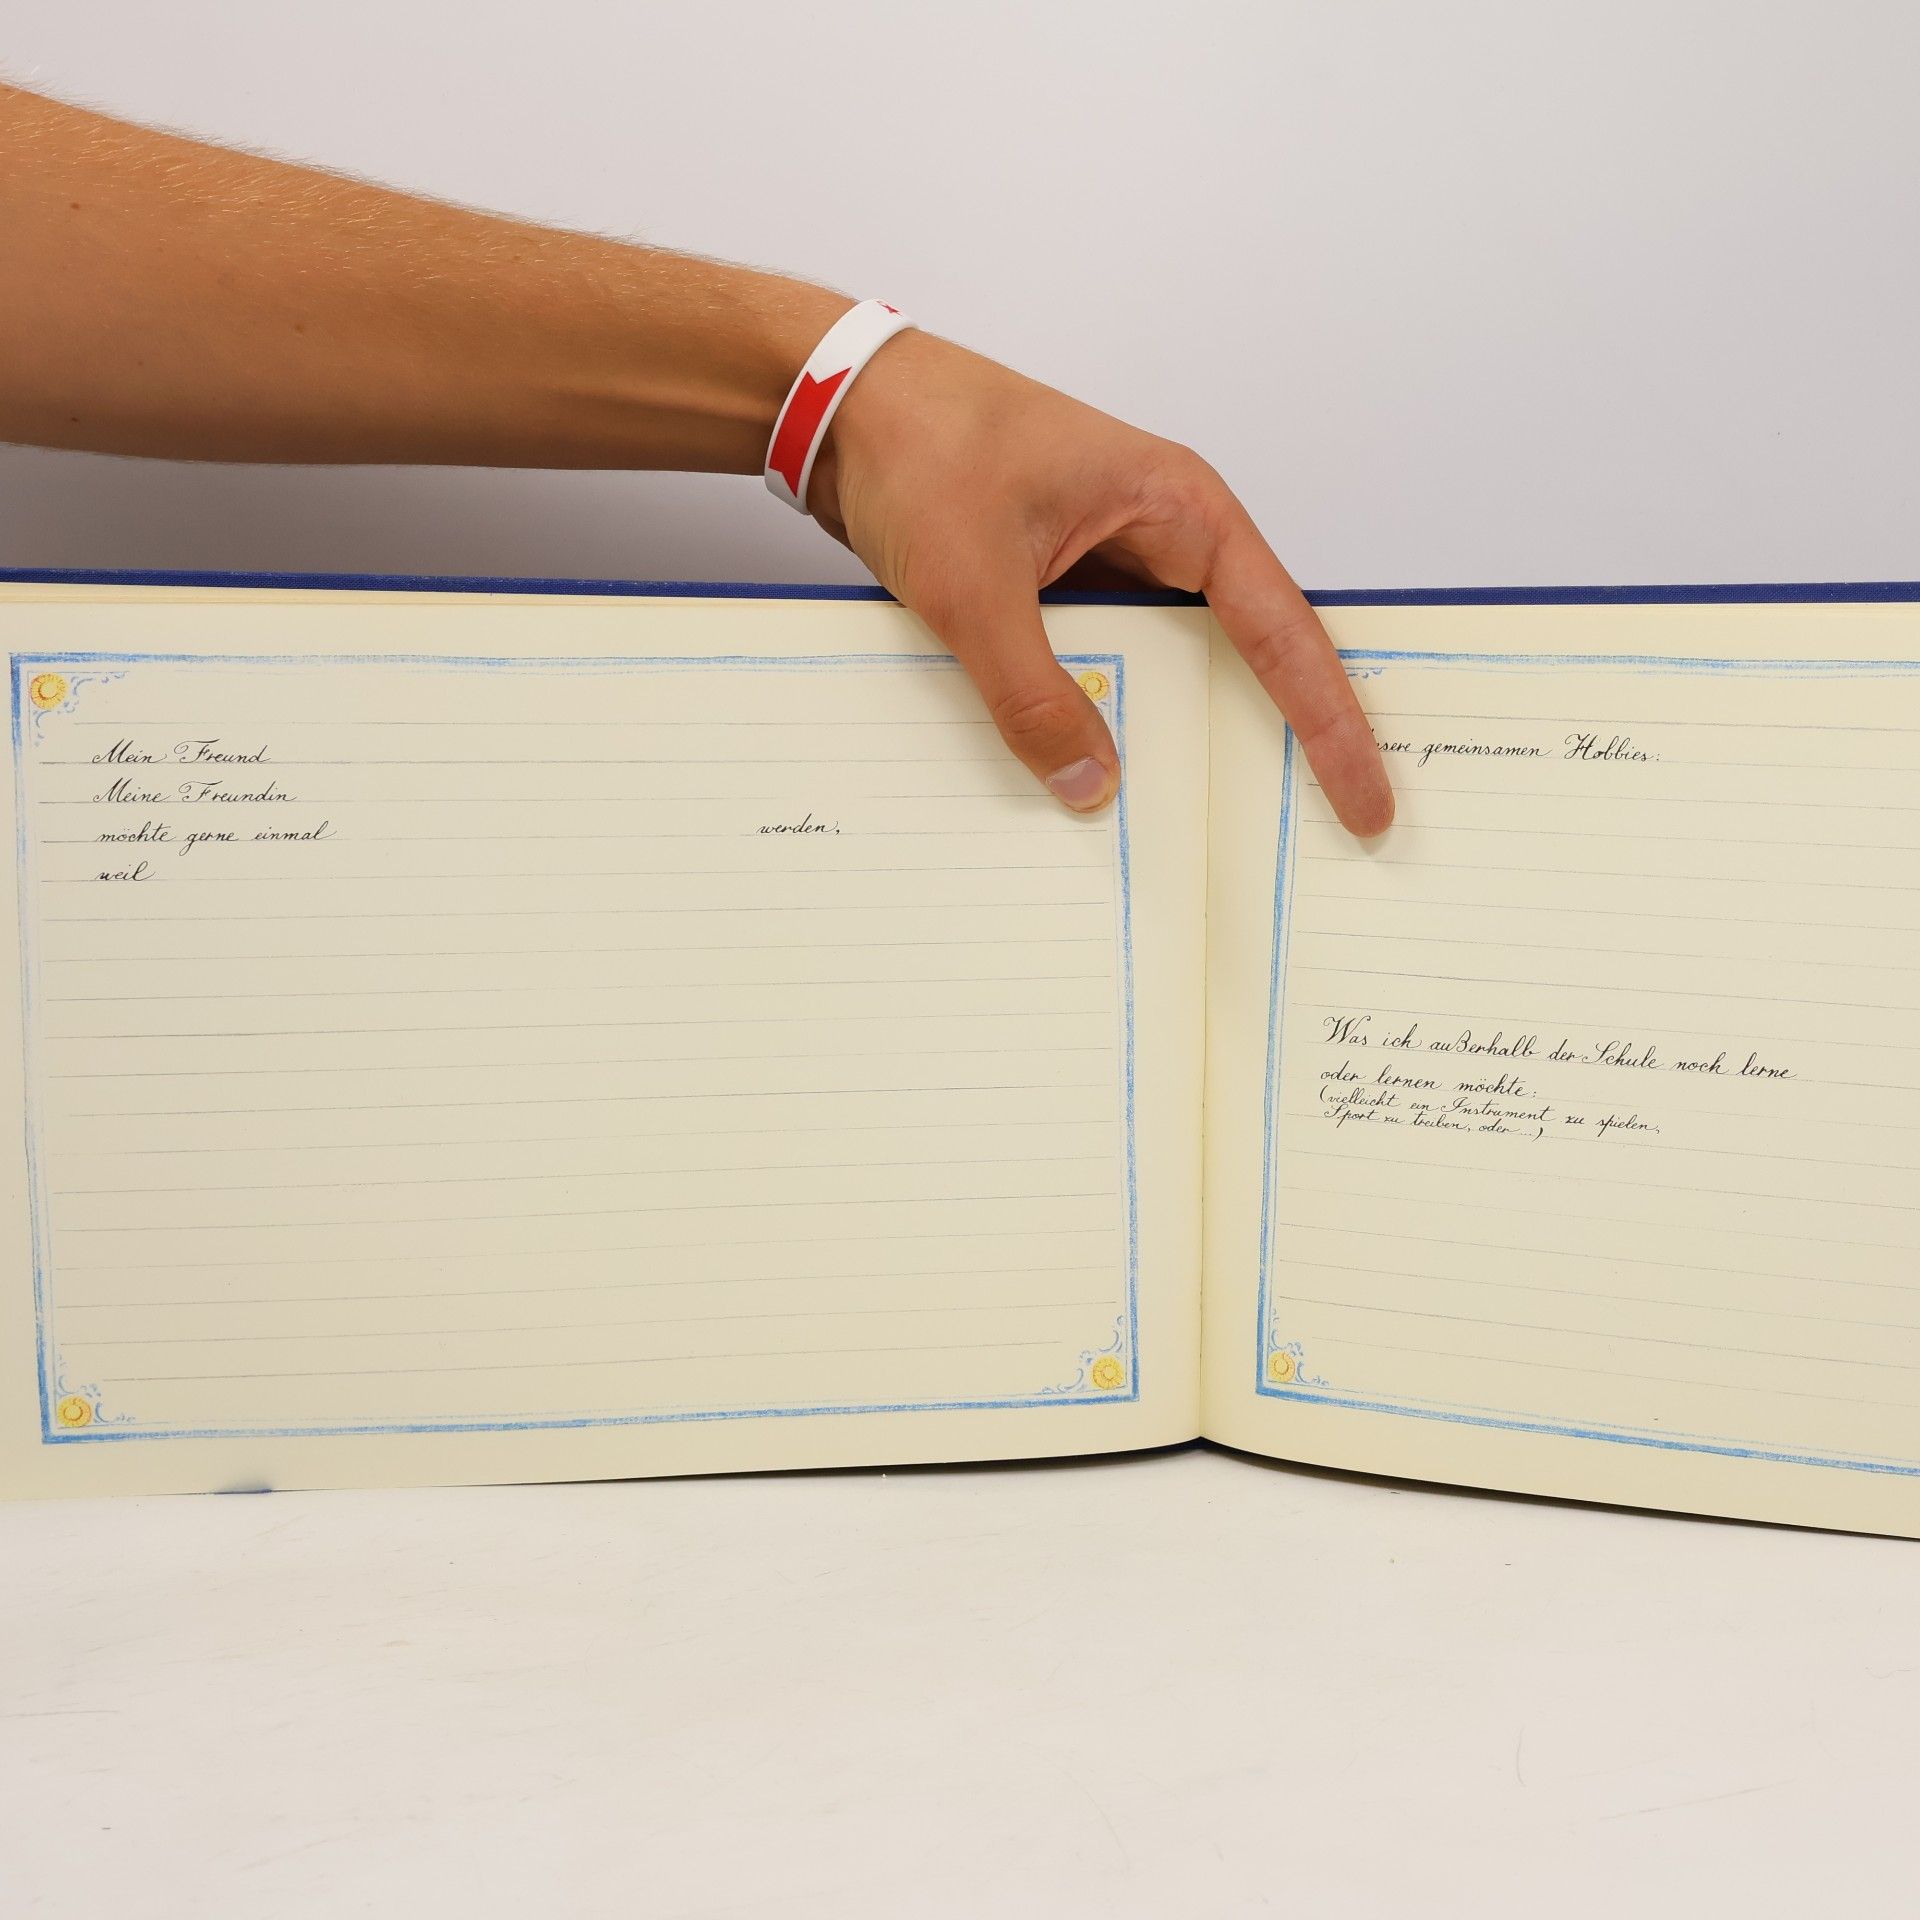 Mein Freund
Meine Freundin
möchte gerne einmal werden,
weil
gemeinsamen Hobbies:
Was ich außerhalb der Schule noch lerne
oder lernen möchte:
(vielleicht ein Instrument zu spielen,
Sport zu treiben, oder ...)